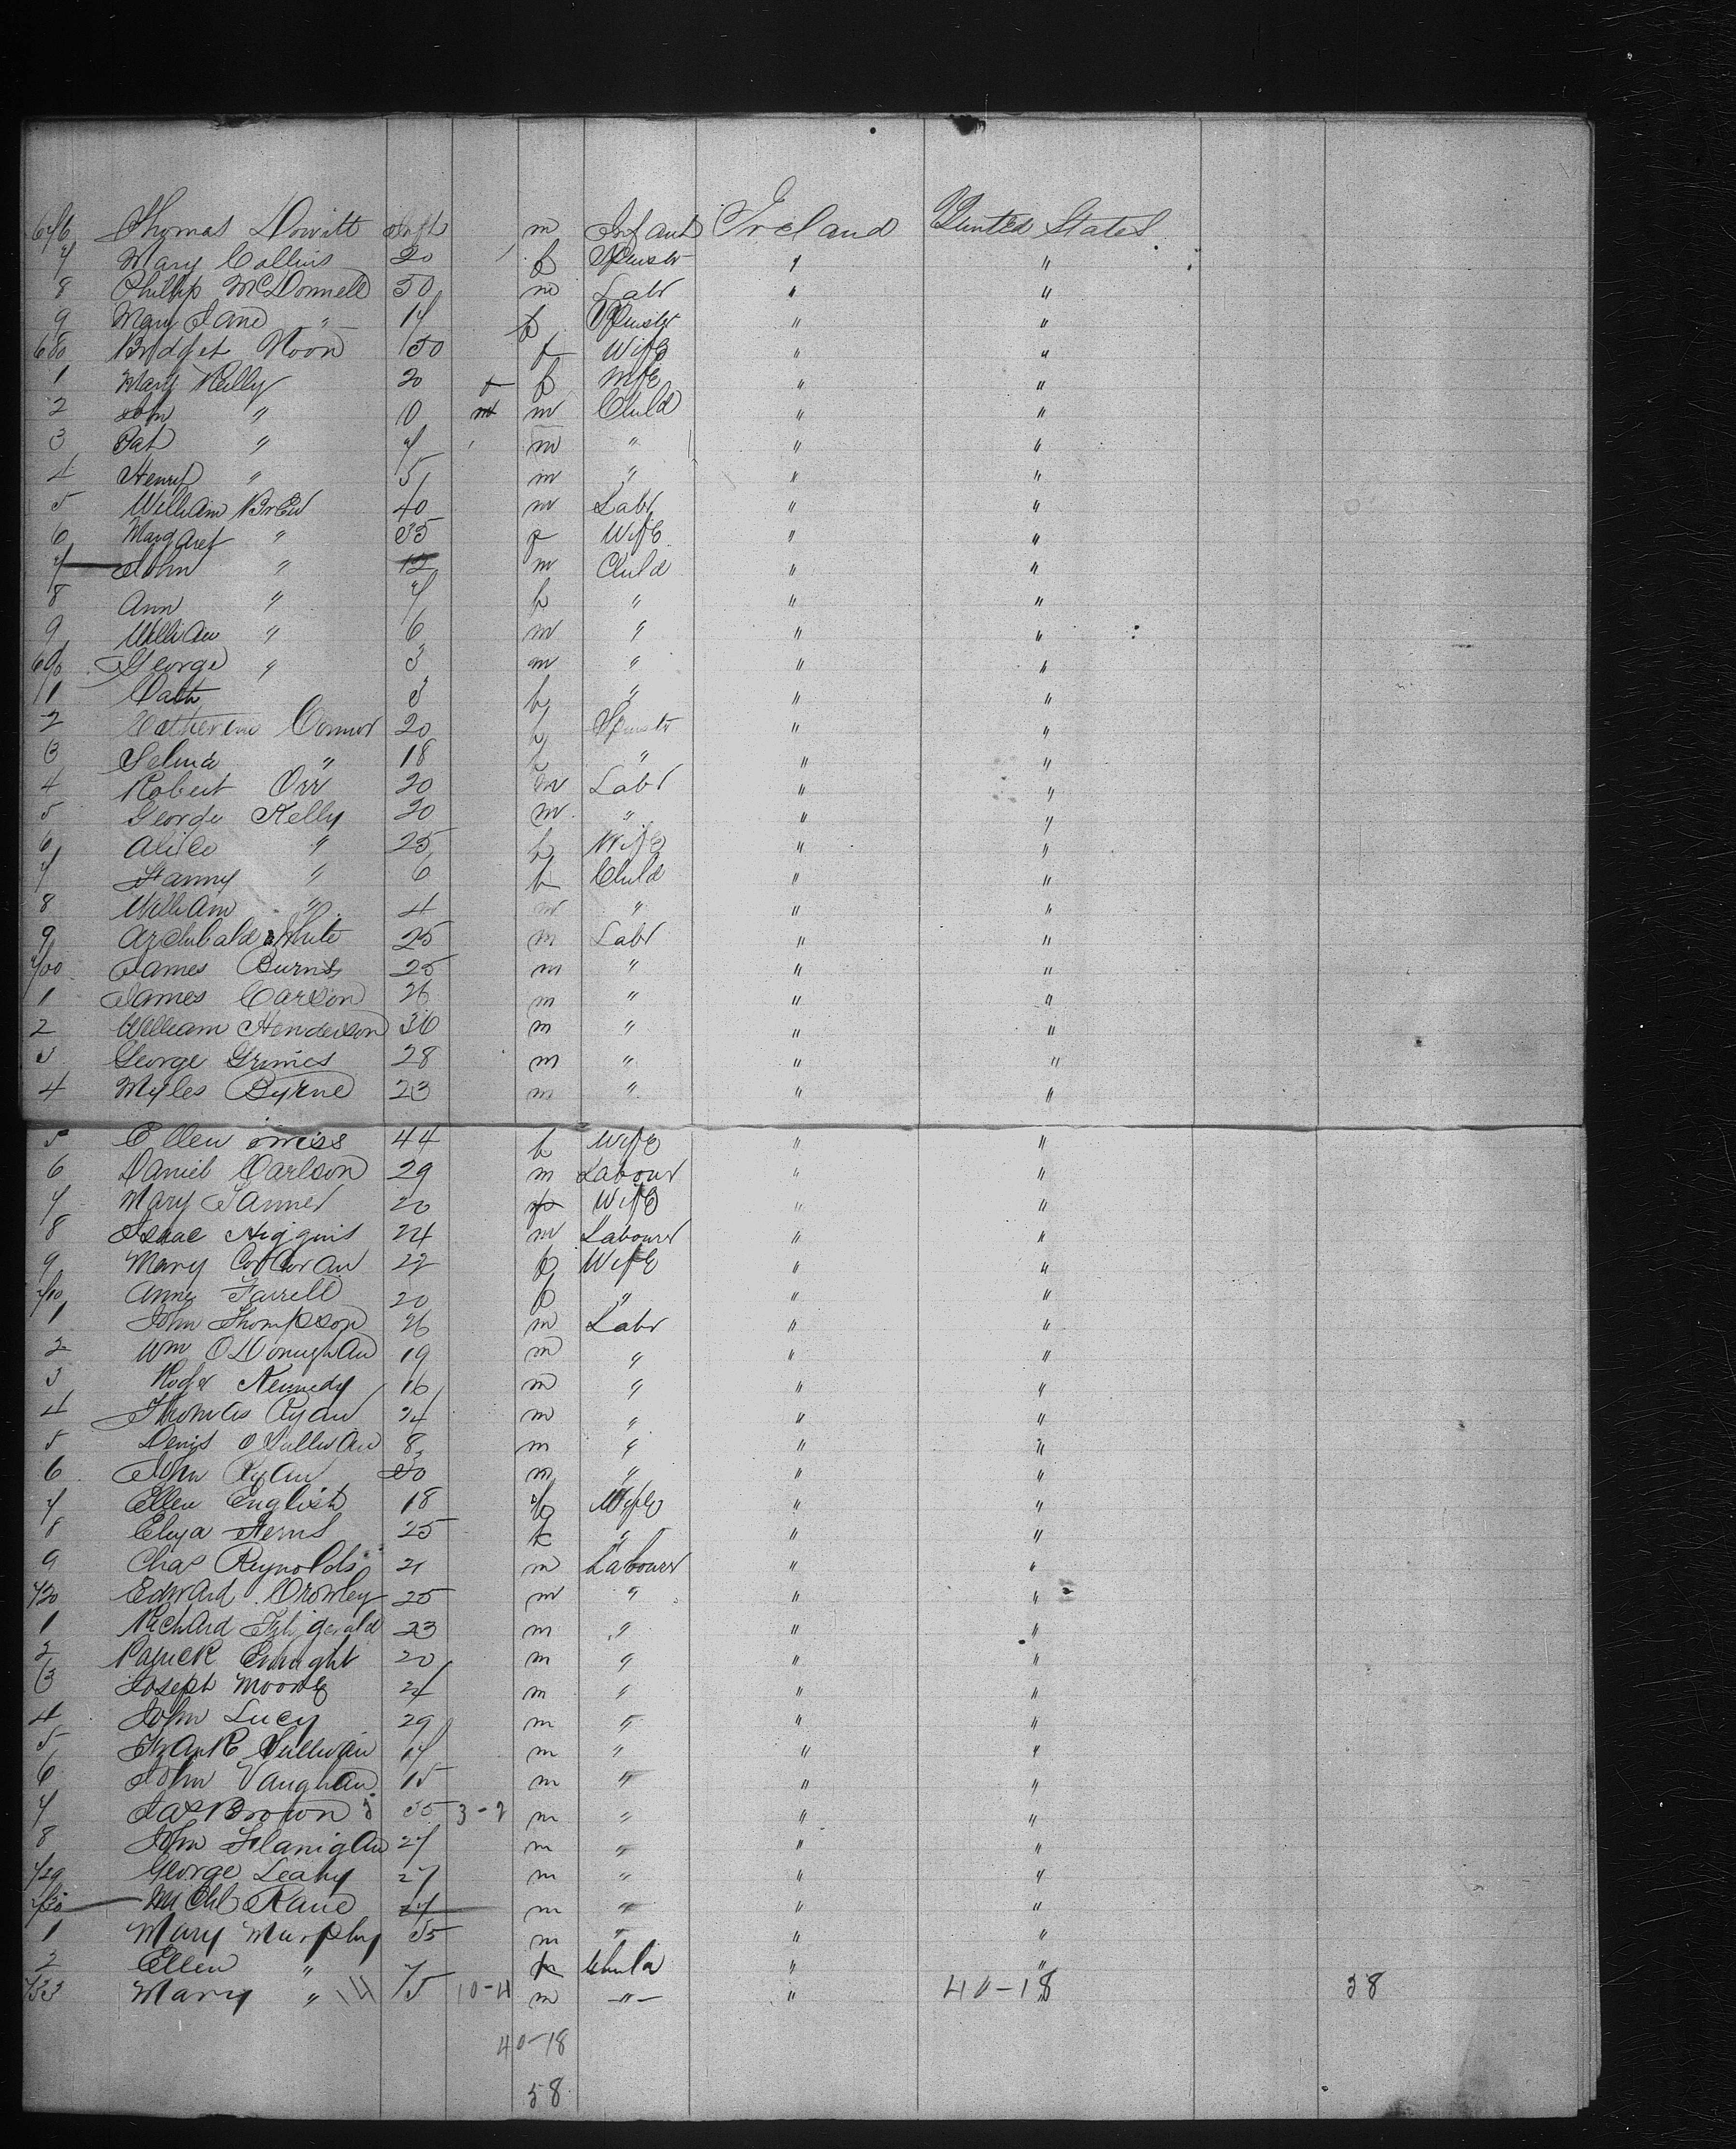 6 Thomas Dowitt Inft m Infant Ireland United States
7 Mary Collins 20 f Spinstr " "
8 Phillip McDonnell 50 m Labr " "
9 Mary Jane " 17 f Spinstr " "
680 Bridget Noon 50 f Wife " "
1 Mary Reilly 20 f f Wife " "
2 John " 10 m m Child " "
3 Pat " 7 m " " "
4 Henry " 5 m " " "
5 William Brew 40 m Labr " "
6 Margaret " 35 f Wife " "
7 John " 12 m Child " "
8 Ann " 7 f " " "
9 William " 6 m " " "
690 George " 3 m " " "
1 Cath 3 f " " "
2 Catherine Connor 20 f Spinstr " "
3 Selina " 18 f " " "
4 Robert Orr 20 m Labr " "
5 George Kelly 20 m " " "
6 Alice " 25 f Wife " "
7 Fanny " 6 f Child " "
8 William " 4 m " " "
9 Archibald White 25 m Labr " "
700 James Burns 25 m " " "
1 James Carson 26 m " " "
2 William Henderson 36 m " " "
3 George Grimes 28 m " " "
4 Myles Byrne 23 m " " "
5 Ellen 44 f Wife " "
6 Daniel Carlson 29 m Labour " "
7 Mary Tanner 20 f Wife " "
8 Isaac Higgins 24 m Labourr " "
9 Mary Corcoran 22 f Wife " "
710 Anne Farrell 20 f " " "
1 John Thompson 26 m Labr " "
2 Wm O'Donughau 19 m " " "
3 Roger Kennedy 16 m " " "
4 Thomas Ryan 24 m " " "
5 Denis O Sullivan 8 m " " "
6 John Ryan 30 m " " "
7 Ellen English 18 f Wife " "
8 Eliza 25 f " " "
9 Chas Reynolds 21 m Labourr " "
720 Edward Crowley 25 m " " "
1 Richard Fitzgerald 23 m " " "
2 Patrick Enright 20 m " " "
3 Joseph Moore 24 m " " "
4 John Lucy 29 m " " "
5 Frank Sullivan 17 m " " "
6 John Vaughan 15 m " " "
7 Jas Brown 35 3-2 m " " "
8 John Flanigan 27 m " " "
729 George Leahy 27 m " " "
730 Michl Kane 27 m " " "
1 Mary Murphy 35 m " " "
2 Ellen " 7 f Child " "
733 Mary " 5 10-4 m -"- " 40-18 38
40-18
58